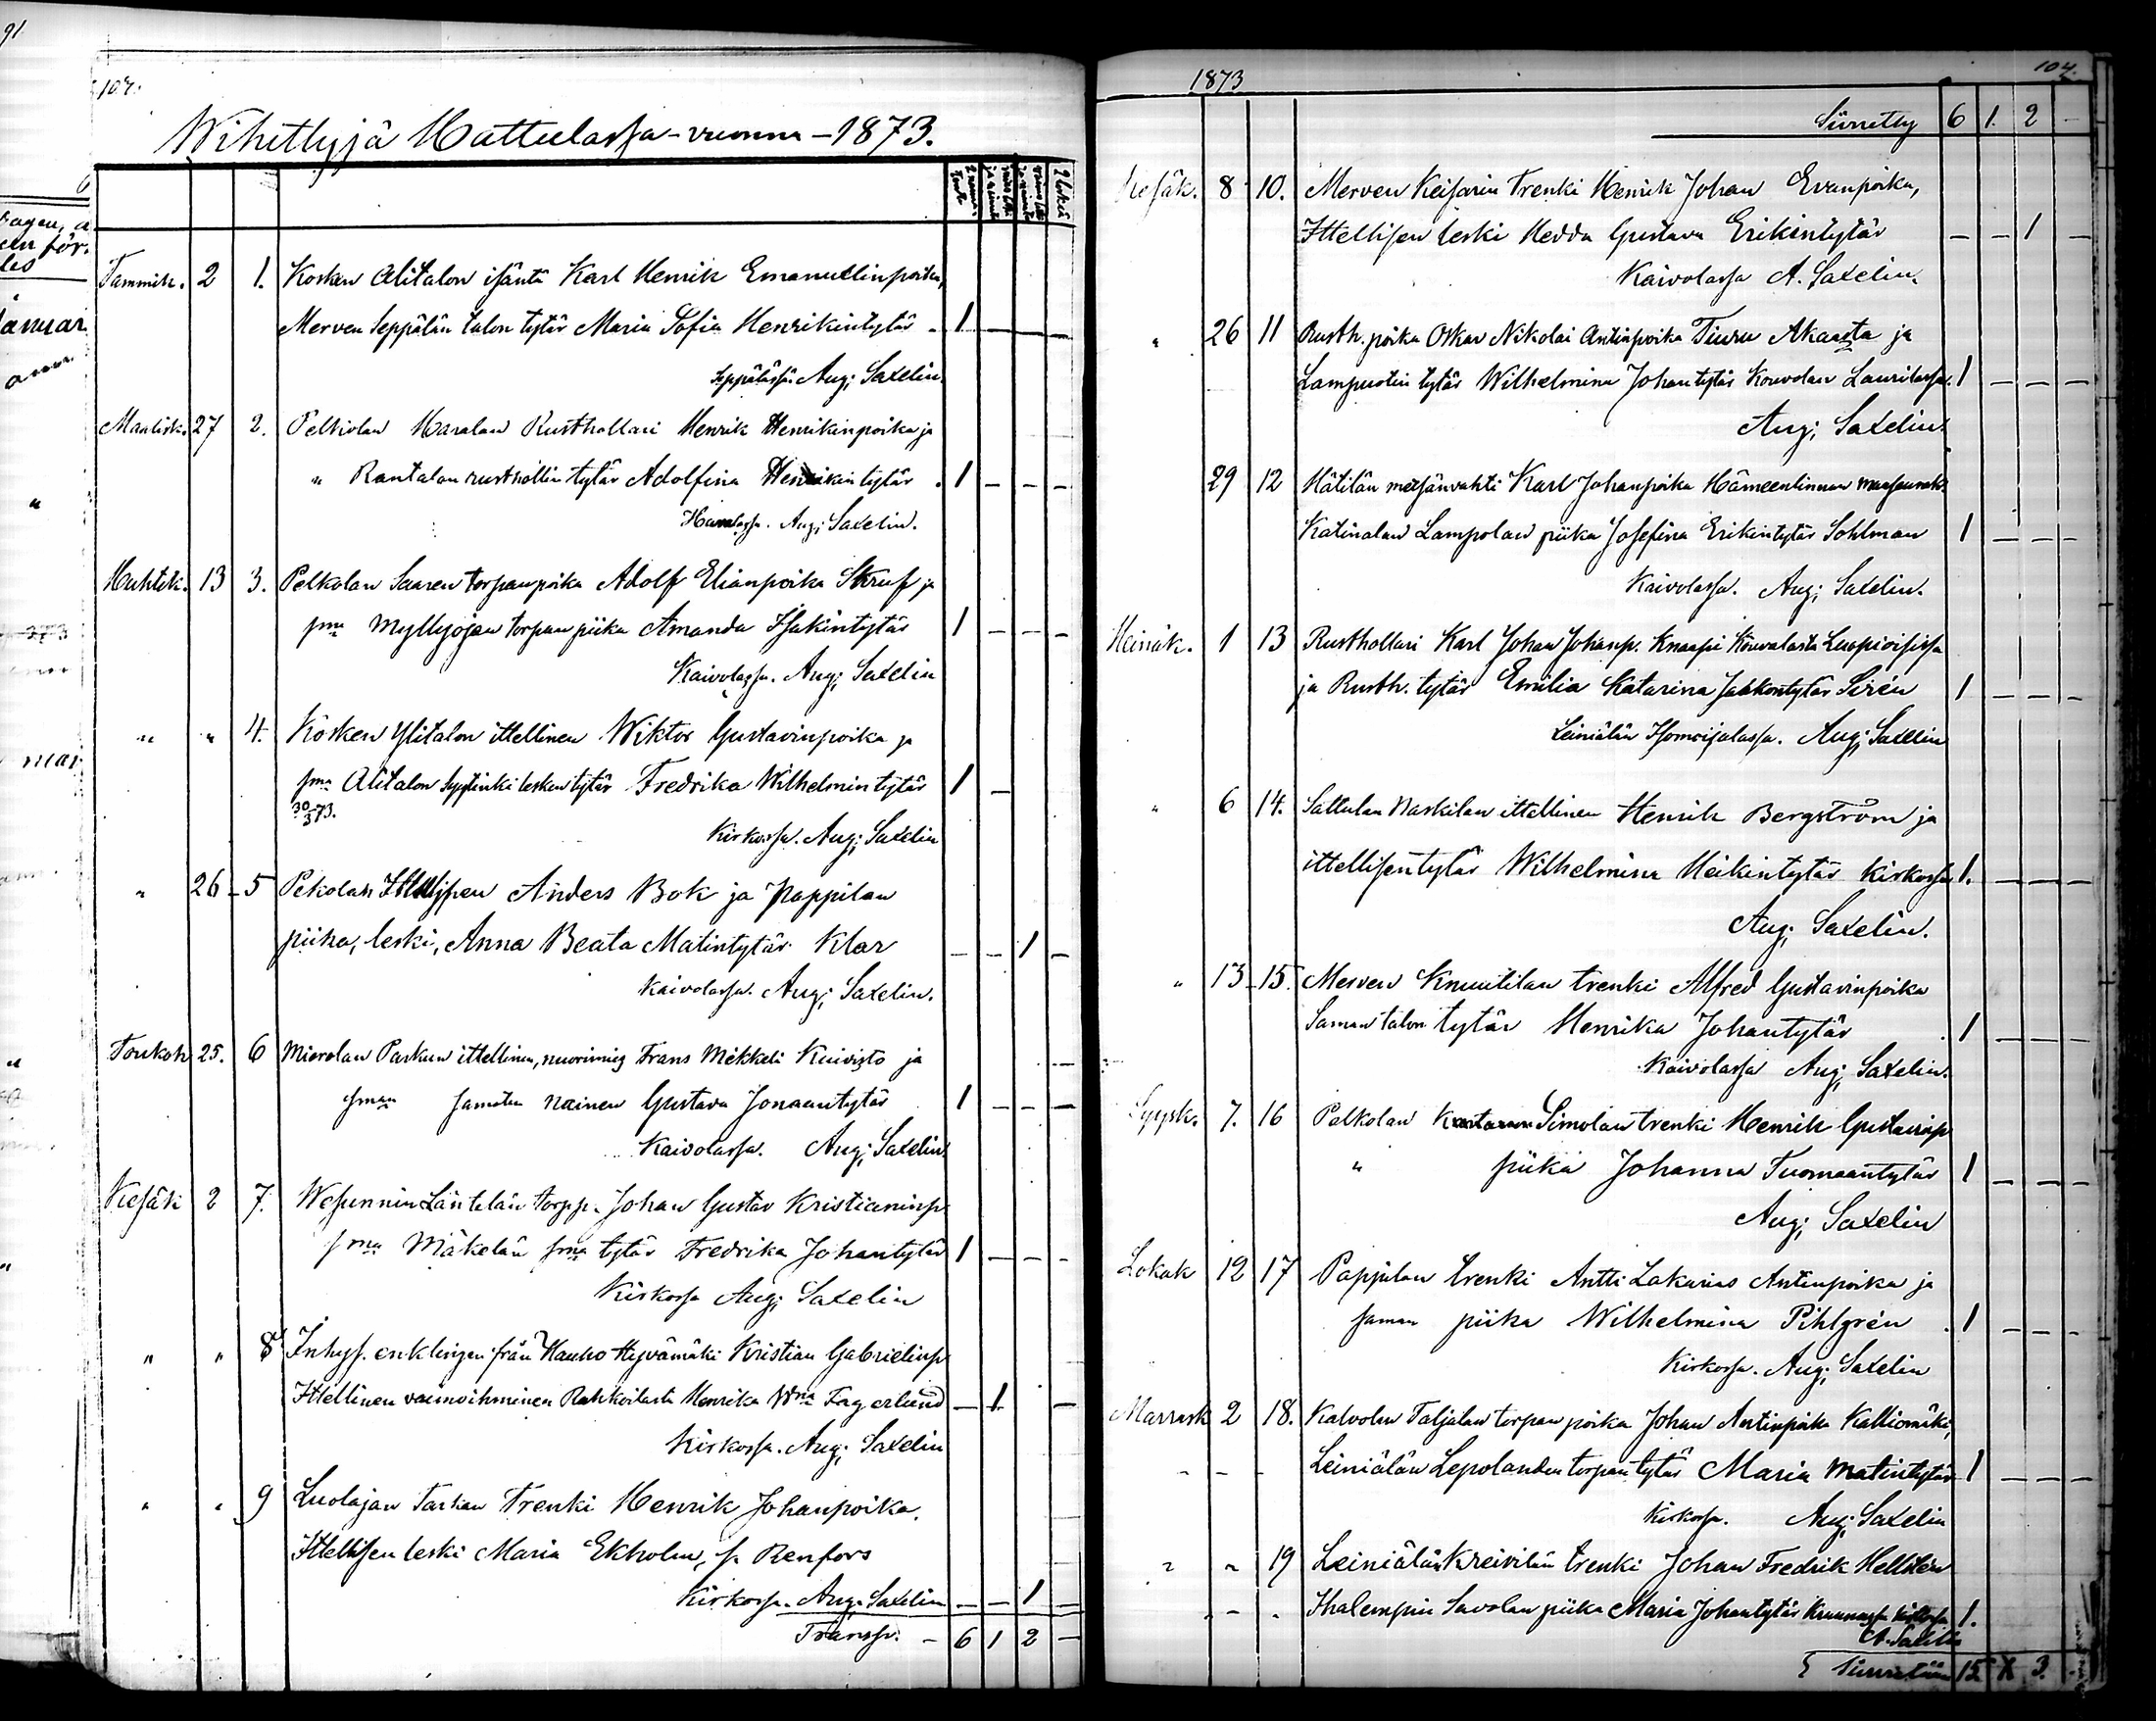 Wihittyjä Hattulassa - vuonna - 1873.
Tammik. 2 1. Kosken Alitalon isäntä Karl Henrik Emanuelinpoika,
Merven Seppälän talon tytär Maria Sofia Henrikintytär - 1 - - -
Seppälässä. Aug; Saxelin.
Maalisk. 27 2. Pelkolan Haralan Rusthollari Henrik Henrikinpoika ja
" Rantalan rusthollin tytär Adolfina Henrikintytär. 1 - - -
Haralassa. Aug; Saxelin.
Huhtik. 13 3. Pelkolan Saaren torpanpoika Adolf Elianpoika Struf ja
sma Myllyojan torpan piika Amanda Isakintytär 1 - - -
Kaivolassa. Aug; Saxelin
" " 4. Kosken Ylitalon ittellinen Wiktor Gustavinpoika ja
sma Alitalon lesken tytär Fredrika Wilhelmintytär 1 -
30/3 73.
Kirkossa. Aug; Saxelin
" 26 5 Pekolan Ittellisen Anders Bok ja Pappilan
piika, leski, Anna Beata Matintytär Klar - - 1 -
Kaivolassa. Aug; Saxelin.
Toukok 25. 6 Mierolan Paskun ittellinen, nuorimies Frans Mikkeli Kuivisto ja
sman samaten nainen Gustava Jonaantytär 1 - - -
Kaivolassa. Aug; Saxelin
Kesäk 2 7. Wesunnin Läntelän torpp. Johan Gustav Kristianinp.
sma Mäkelän sma tytär Fredrika Johantytär 1 - - -
Kirkossa Aug; Saxelin
" " 8 Inhys. enklingen från Hauho Hyvämäki Kristian Gabrielinp
Ittellinen vaimoihminen Rahkoilasta Henrika Wma Fagerlund - 1 -
Kirkossa. Aug; Saxelin
" " 9 Luolajan Tarkan Trenki Henrik Johanpoika.
Ittellisen leski Maria Ekholm, f. Renfors
Kirkossa. Aug. Saxelin - - 1 -
Transp. - 6 1 2 -
1873
104.
Siirretty 6 1. 2 -
Kesäk. 8 10. Merven Keisarin Trenki Henrik Johan Evanpoika,
Ittellisen leski Hedda Gustava Erikintytär - - 1 -
Kaivolassa A. Saxelin.
" 26 11 Rusth. poika Oskar Nikolai Antinpoika Tiuru Akaasta ja
Lampuotin tytär Wilhelmina Johantytär Kouvolan Laurilassa. 1 - - -
Aug; Saxelin.
29 12 Hätilän metsänvahti Karl Johanpoika Hämeenlinnan maaseurak.
Katinalan Lampolan piika Josefina Erikintytär Sohlman 1 - - -
Kaivolassa. Aug; Saxelin.
Heinäk. 1 13 Rusthollari Karl Johan Johanp. Knaapi Kouvalasta Luopioisissa
ja Rusth. tytär Emilia Katarina Jaakontytär Sirén 1 - - -
Leiniälän Isomoisalassa. Aug; Saxelin
" 6 14. Sattulan Naskilan ittellinen Henrik Bergström ja
ittellisentytär Wilhelmina Heikintytär Kirkossa 1. - - -
Aug; Saxelin.
" 13 15. Merven Knuutilan trenki Alfred Gustavinpoika
Saman talon tytär Henrika Johantytär 1 - - -
Kaivolassa Aug; Saxelin.
Syysk. 7. 16 Pelkolan Simolan trenki Henrik Gustavinp
" piika Johanna Tuomaantytär 1 - - -
Aug; Saxelin
Lokak 12 17 Pappilan trenki Antti Sakarias Antinpoika ja
saman piika Wilhelmina Pihlgrén 1 - - -
Kirkossa. Aug; Saxelin
Marrask 2 18. Kalvolan Taljalan torpan poika Johan Antinpoika Kalliomäki,
- - - Leiniälän Lepolanden torpan tytär Maria Matintytär 1 - - -
Kirkossa. Aug; Saxelin
" " 19 Leiniälän Kreivilän trenki Johan Fredrik Hellstén
- - - Ihalempin Savolan piika Maria Johantytär Kirkossa 1.
A. Saxelin
Siirretään 15 X 3.